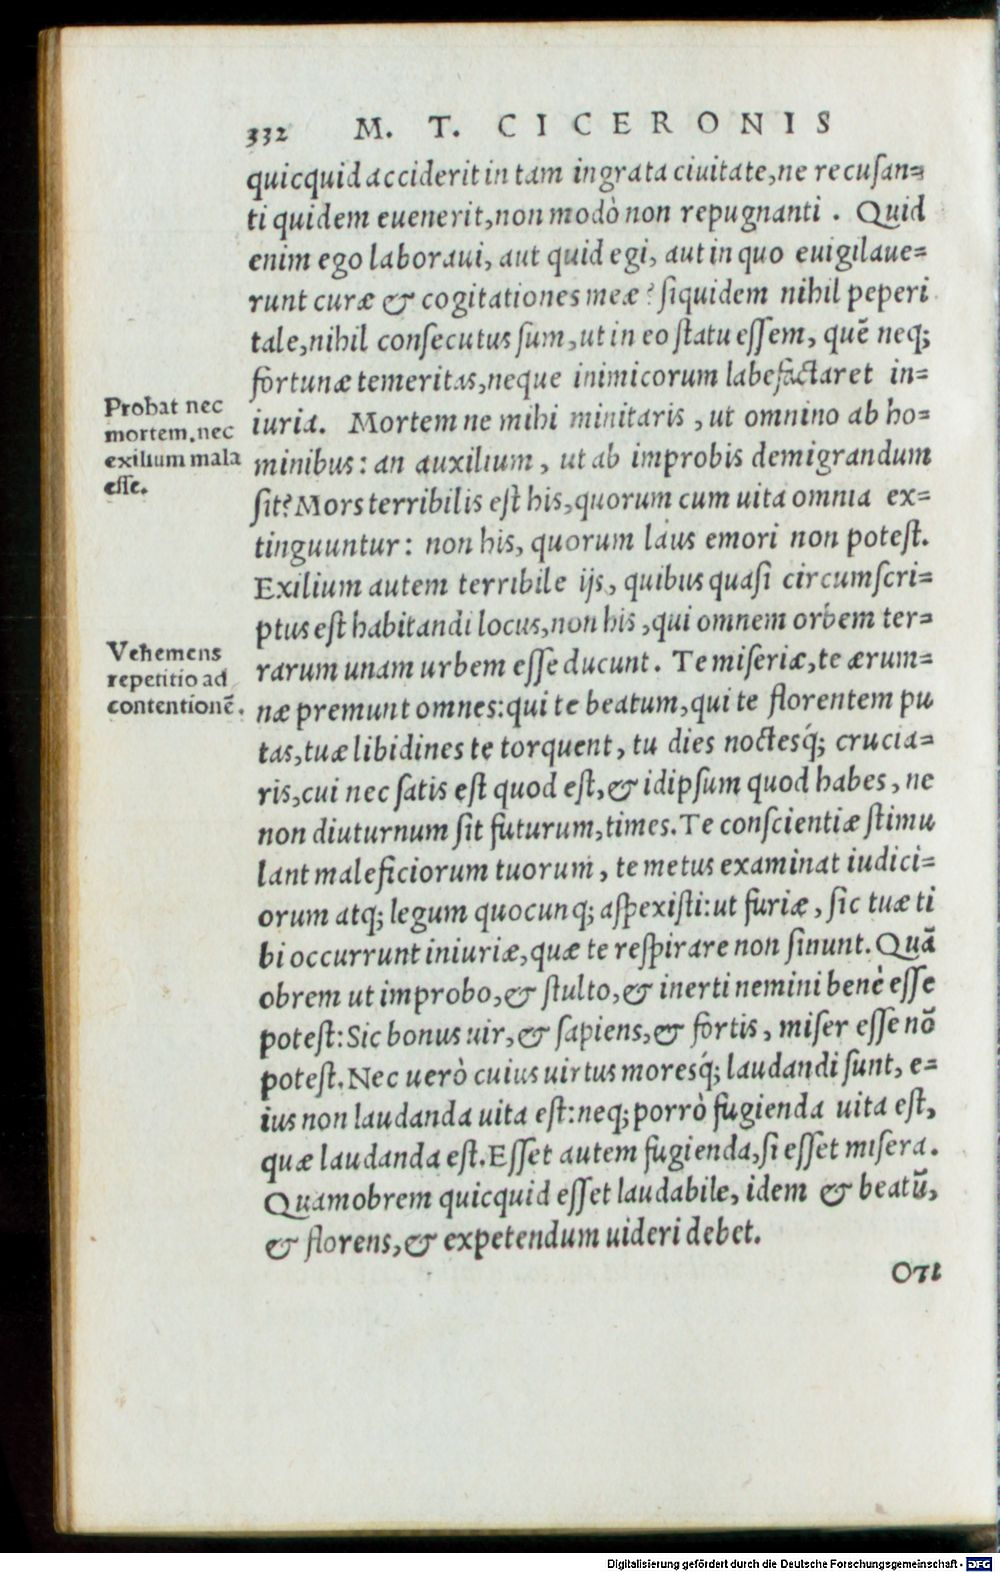 332 M. T. CICERONIS
quicquid acciderit in tam ingrata ciuitate, ne recuſan=
ti quidem euenerit, non modò non repugnanti. Quid
enim ego laboraui, aut quid egi, aut in quo euigilaue=
runt curæ & cogitationes meæ? ſiquidem nihil peperi
tale, nihil conſecutus ſum, ut in eo ſtatu eſſem, quē neq;
fortunæ temeritas, neque inimicorum labefactaret in=
iuria. Mortem ne mihi minitaris, ut omnino ab ho=
minibus: an auxilium, ut ab improbis demigrandum
ſit? Mors terribilis eſt his, quorum cum uita omnia ex=
tinguuntur: non his, quorum laus emori non poteſt.
Exilium autem terribile ijs, quibus quaſi circumſcri=
ptus eſt habitandi locus, non his, qui omnem orbem ter=
rarum unam urbem eſſe ducunt. Te miſeriæ, te ærum=
næ premunt omnes: qui te beatum, qui te florentem pu
tas, tuæ libidines te torquent, tu dies noctesq́; crucia=
ris, cui nec ſatis eſt quod eſt, & idipſum quod habes, ne
non diuturnum ſit futurum, times. Te conſcientiæ ſtimu
lant maleficiorum tuorum, te metus examinat iudici=
orum atq; legum quocunq; aſpexiſti: ut furiæ, ſic tuæ ti
bi occurrunt iniuriæ, quæ te reſpirare non ſinunt. Quā
obrem ut improbo, & ſtulto, & inerti nemini benè eſſe
poteſt: Sic bonus uir, & ſapiens, & fortis, miſer eſſe nō
poteſt. Nec uerò cuius uirtus moresq́; laudandi ſunt, e=
ius non laudanda uita eſt: neq; porrò fugienda uita eſt,
quæ laudanda eſt. Eſſet autem fugienda, ſi eſſet miſera.
Quamobrem quicquid eſſet laudabile, idem & beatū,
& florens, & expetendum uideri debet.
OTI
Probat nec
mortem, nec
exilium mala
eſſe.
Vehemens
repetitio ad
contentionē.
Digitalisierung gefördert durch die Deutsche Forschungsgemeinschaft - DFG